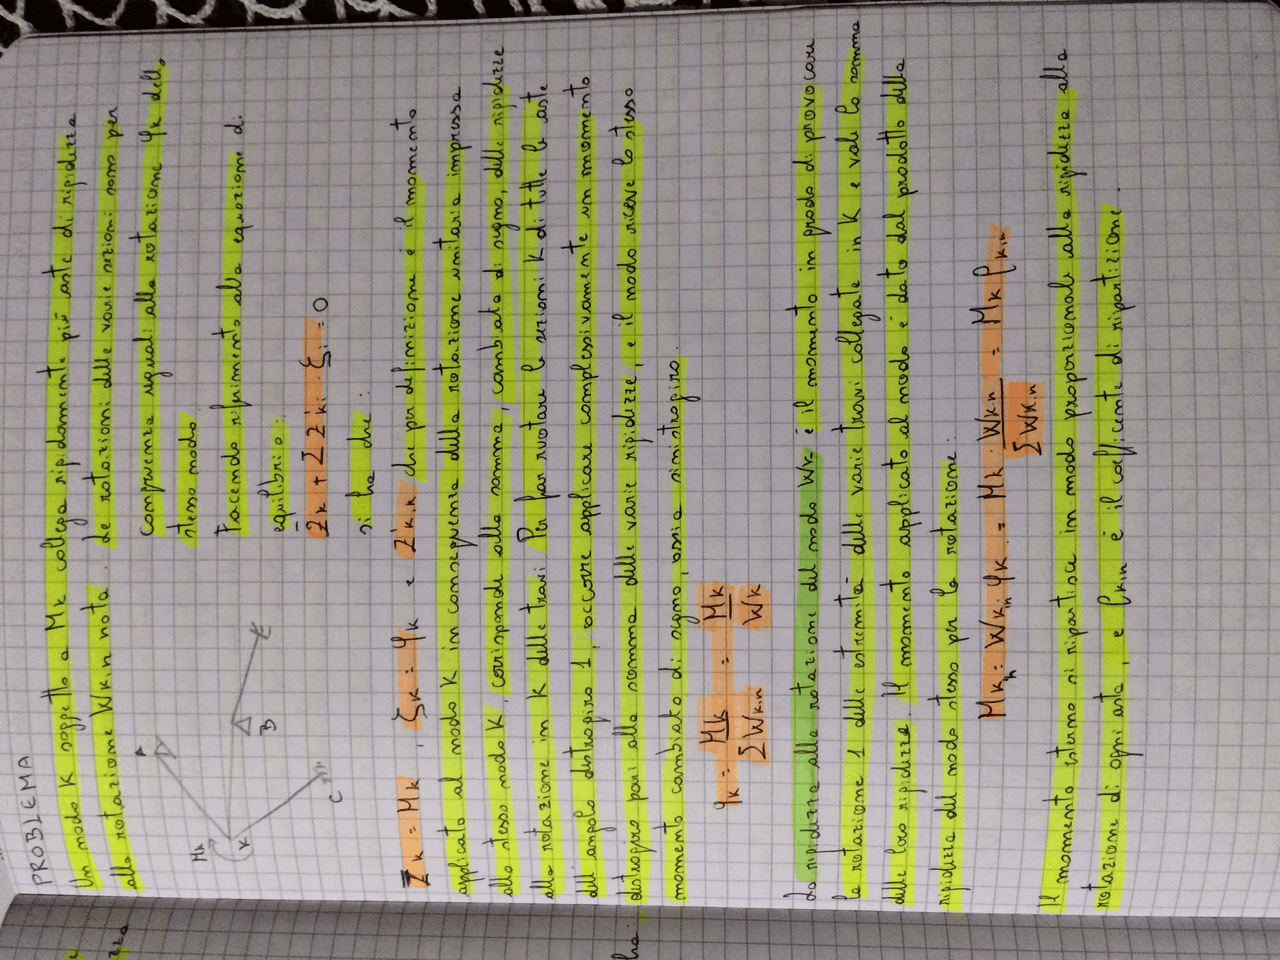 PROBLEMA
Un nodo K soggetto a MK collega rigidamente più aste di rigidezza
alla rotazione WK,n nota. Le rotazioni delle varie sezioni sono per
congruenza uguali alla rotazione φK dello
stesso nodo.
Facendo riferimento alla equazione di
equilibrio:
Z̄K + Σ Z'Ki · ξi = 0
si ha che:
MK
K
A
B
C
Z̄K = MK , ξK = φK e Z'K,K , che per definizione è il momento
applicato al nodo K in conseguenza della rotazione unitaria impressa
allo stesso nodo K, corrisponde alla somma, cambiata di segno, delle rigidezze
alla rotazione in K delle travi. Per far ruotare le sezioni K di tutte le aste
dell'angolo destrogiro 1, occorre applicare complessivamente un momento
destrogiro pari alla somma delle varie rigidezze, e il nodo riceve lo stesso
momento cambiato di segno, ossia sinistrogiro.
φK = MK / ΣWK,n = MK / WK
La rigidezza alla rotazione del nodo WK è il momento in grado di provocare
la rotazione 1 delle estremità delle varie travi collegate in K e vale la somma
delle loro rigidezze. Il momento applicato al nodo è dato dal prodotto della
rigidezza del nodo stesso per la rotazione.
MK,n = WK,n φK = MK · WK,n / ΣWK,n = MK ρK,n
Il momento esterno si ripartisce in modo proporzionale alla rigidezza alla
rotazione di ogni asta, e ρK,n è il coefficiente di ripartizione.
ha: